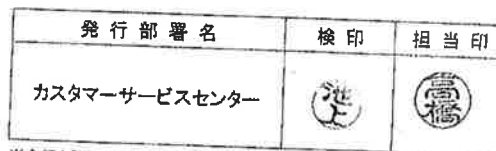 発行部署名 検印 担当印
カスタマーサービスセンター 池上 高橋